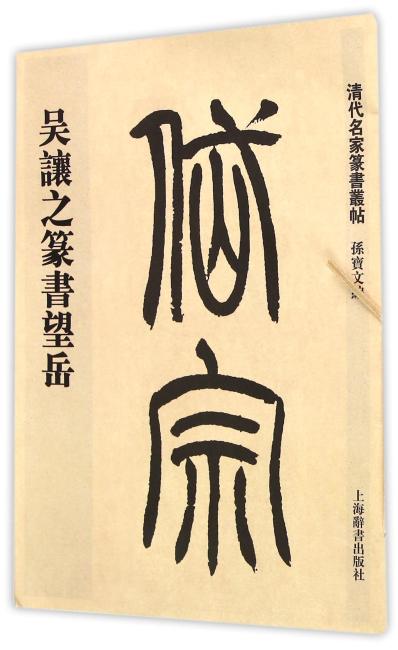 清代名家篆書叢帖
孫寶文
上海辭書出版社
岱宗
吴讓之篆書望岳